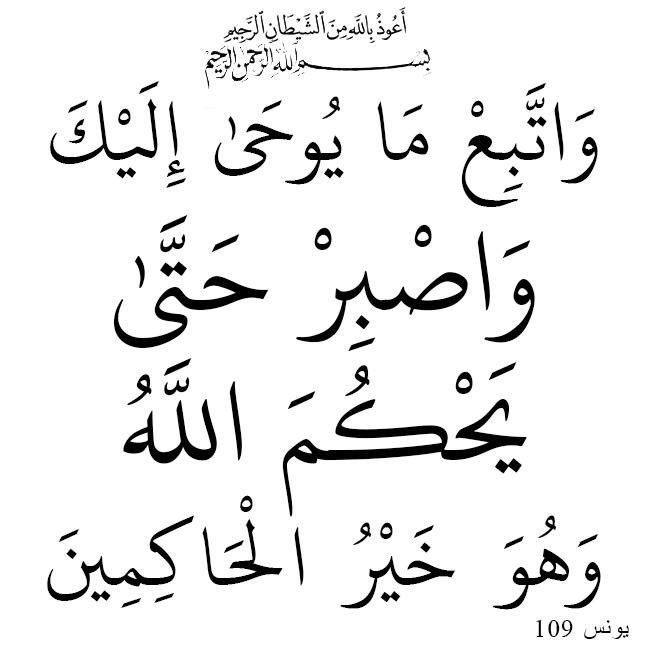 أَعُوذُ بِاللَّهِ مِنَ الشَّيْطَانِ الرَّجِيمِ
بِسْمِ اللَّهِ الرَّحْمَنِ الرَّحِيمِ
وَاتَّبِعْ مَا يُوحَىٰ إِلَيْكَ
وَاصْبِرْ حَتَّىٰ
يَحْكُمَ اللَّهُ
وَهُوَ خَيْرُ الْحَاكِمِينَ
يونس 109